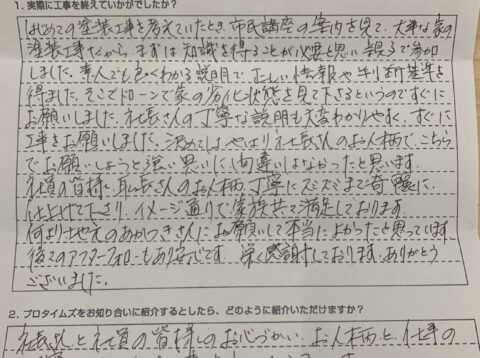 1. 実際に工事を終えていかがでしたか?
はじめての塗装工事を考えていたとき、市民講座の案内を見て、大事な家の
塗装工事だから、まずは知識を得ることが必要と思い親子で参加
しました。素人でも良くわかる説明で正しい情報や判断基準を
得ました。そこでドローンで家の劣化状態を見て下さるというのですぐに
お願いしました。社長さんの丁寧な説明も大変わかりやすく、すぐに
工事をお願いしました。決め手はやはり社長さんのお人柄で、こちら
でお願いしようと強い思いに間違いはなかったと思います。
社員の皆様、職長さんのお人柄、丁寧にスミズミまで奇麗に
仕上げて下さり、イメージ通りで家族共々満足しております。
何より地元のあかつきさんにお願いして本当によかったと思っています。
後てのアフターフォローもあり安心です。深く感謝しております。ありがとう
ございました。
2. プロタイムズをお知り合いに紹介するとしたら、どのように紹介いただけますか?
社長さんと社員の皆様のお心づかい、お人柄と、仕事の